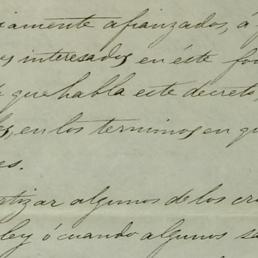 iamente afianzados, á
es interesados en éste fo
que habla este decreto,
en los terminos en q
es.
tizar algunos de los cr
ley ó cuando algunos se